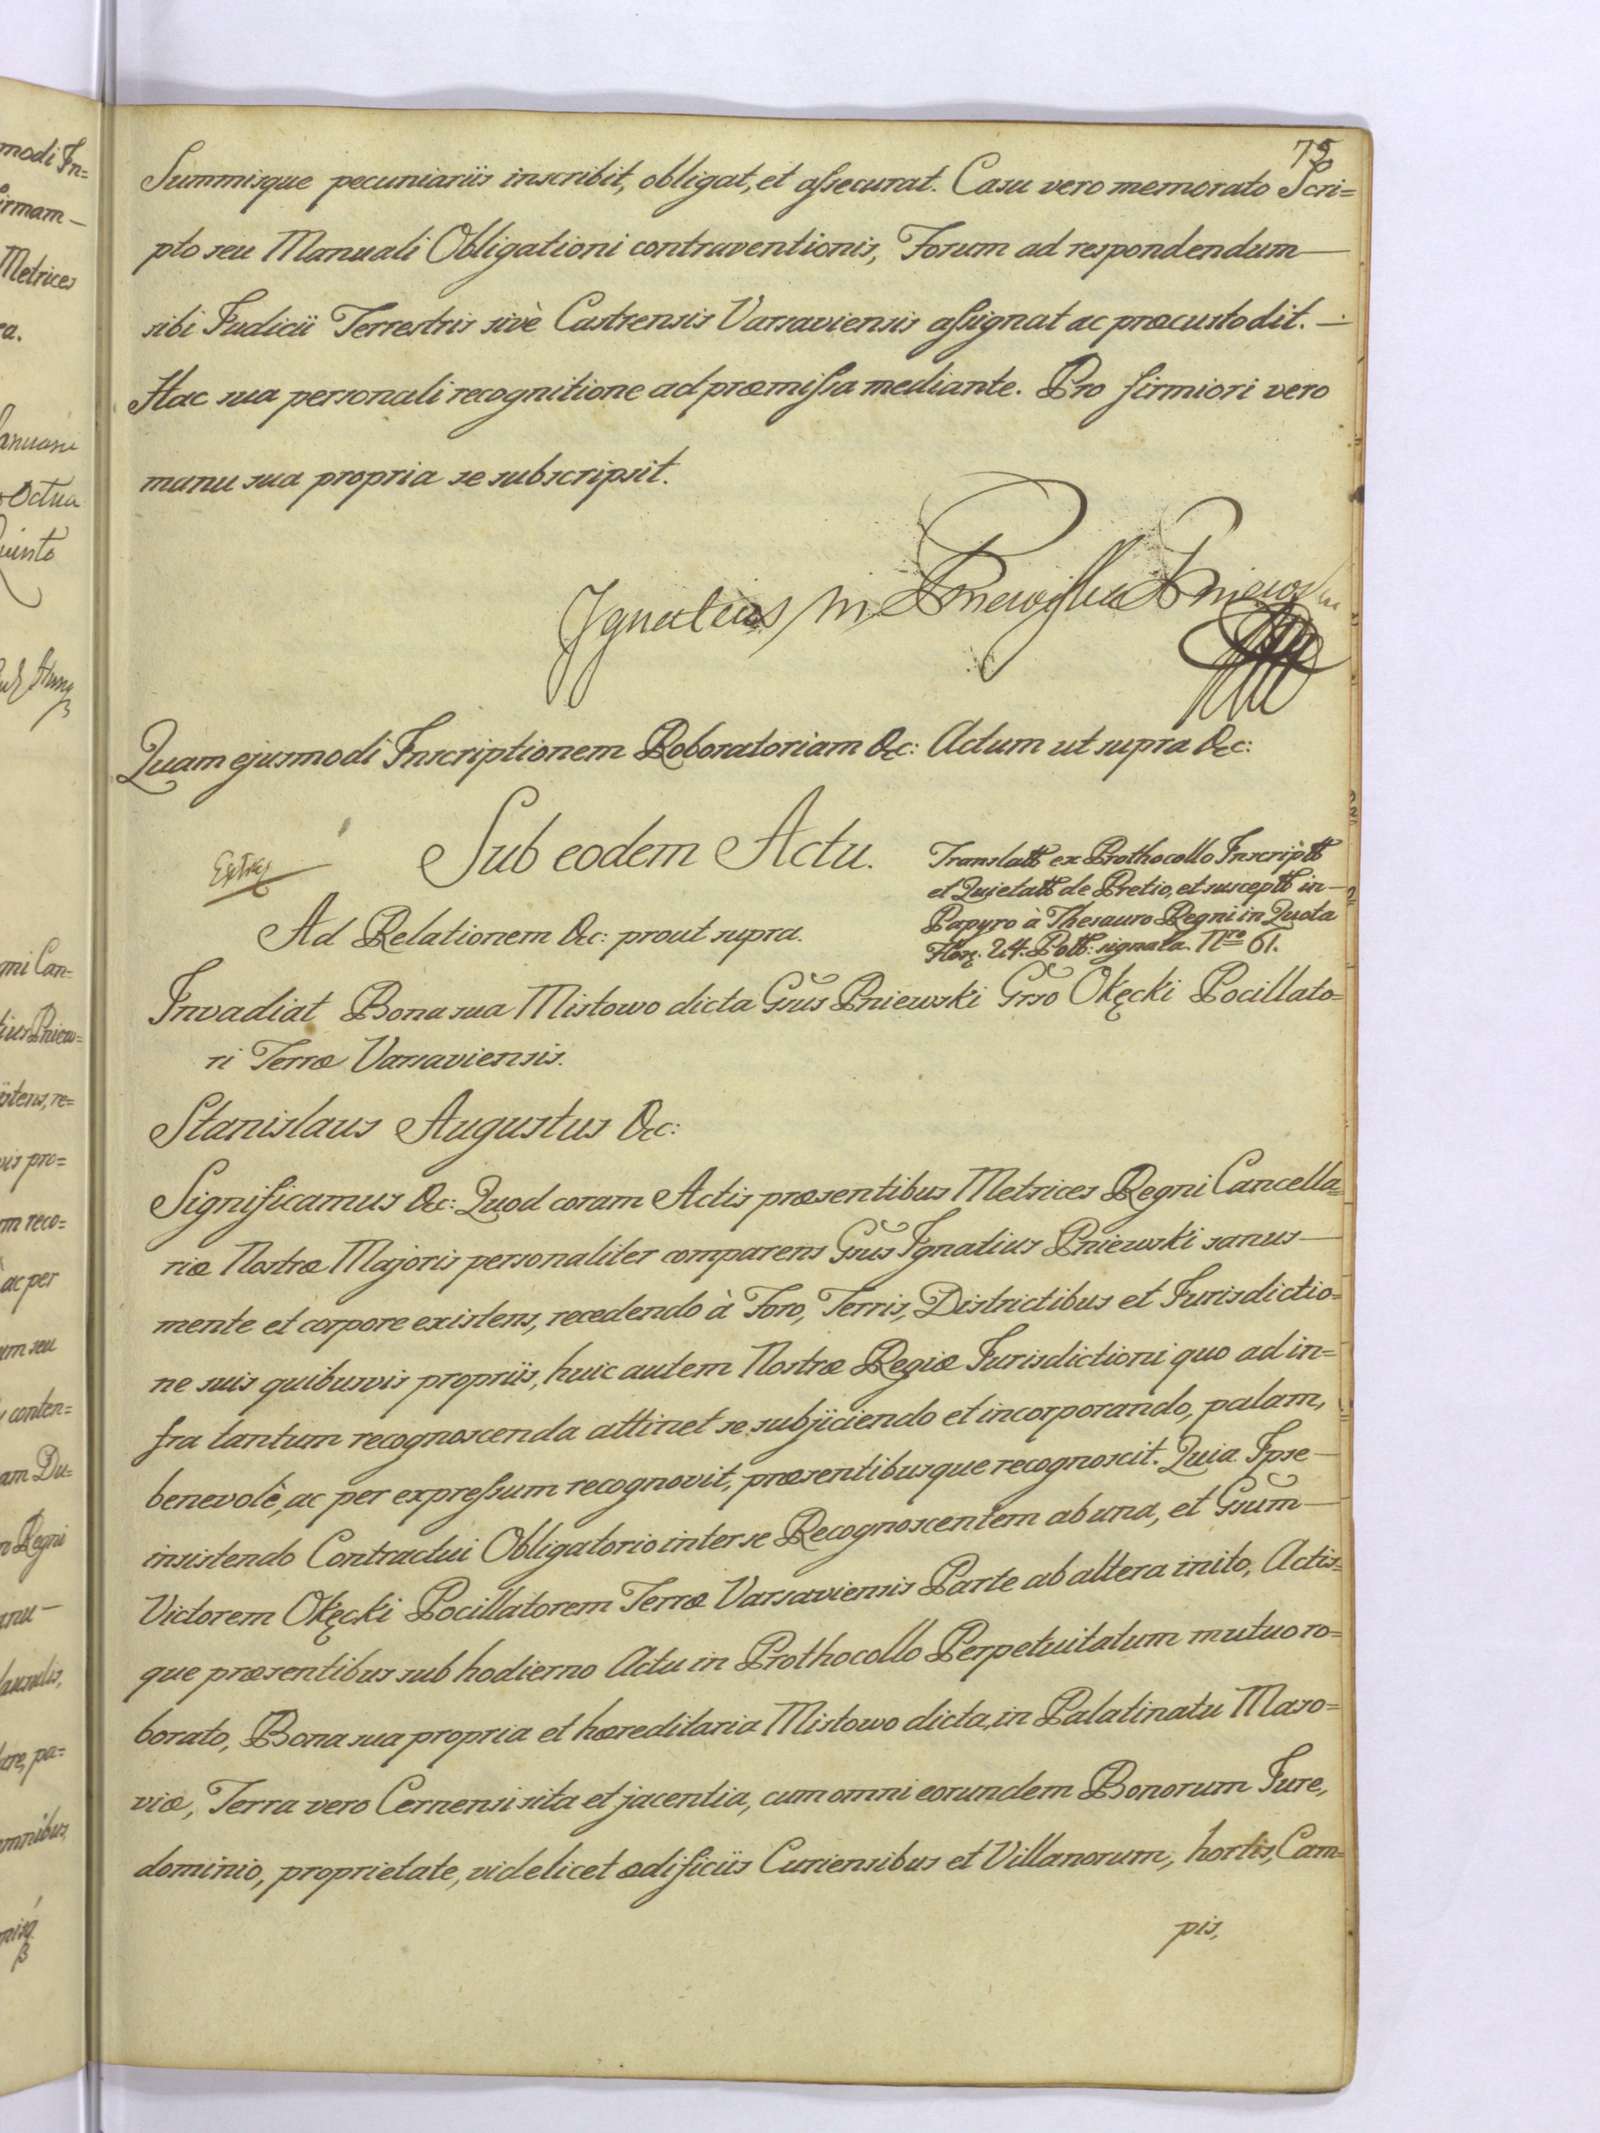 75
Summisque pecuniariis inscribit, obligat, et assecurat. Casu vero memorato Scri=
pto seu Manuali Obligationi contraventionis, Forum ad respondendum —
sibi Judicii Terrestris sivè Castrensis Varsaviensis assignat ac præcustodit. —
Hac sua personali recognitione ad præmissa mediante. Pro firmiori vero
manu sua propria se subscripsit.
Ignatius in
Quam ejusmodi Inscriptionem Roboratoriam &c: Actum ut supra &c:
Sub eodem Actu.
Ad Relationem &c: prout supra.
ex Prothocollo
de Pretio, et in —
Papyro à Thesauro Regni in Quota
24. signata. Nro 61.
Invadiat Bona sua Mistowo dicta Gsus Pniewski Grso Okęcki Pocillato=
ri Terræ Varsaviensis.
Stanislaus Augustus &c:
Significamus &c: Quod coram Actis præsentibus Metrices Regni Cancella=
riæ Nostræ Majoris personaliter comparens Gsus Ignatius Pniewski sanus —
mente et corpore existens, recedendo à Foro, Terris, Districtibus et Jurisdictio=
ne suis quibusvis propriis, huic autem Nostræ Regiæ Jurisdictioni quo ad in=
fra tantum recognoscenda attinet se subjiciendo et incorporando, palam,
benevolè, ac per expressum recognovit, præsentibusque recognoscit. Quia Ipse —
insistendo Contractui Obligatorio inter se Recognoscentem ab una, et Gsum —
Victorem Okęcki Pocillatorem Terræ Varsaviensis Parte ab altera inito, Actis=
que præsentibus sub hodierno Actu in Prothocollo Perpetuitatum mutuo ro=
borato, Bona sua propria et hæreditaria Mistowo dicta, in Palatinatu Maso=
viæ, Terra vero Cernensi sita et jacentia, cum omni eorundem Bonorum Jure,
dominio, proprietate, videlicet ædificiis Curiensibus et Villanorum, hortis, Cam=
pis,